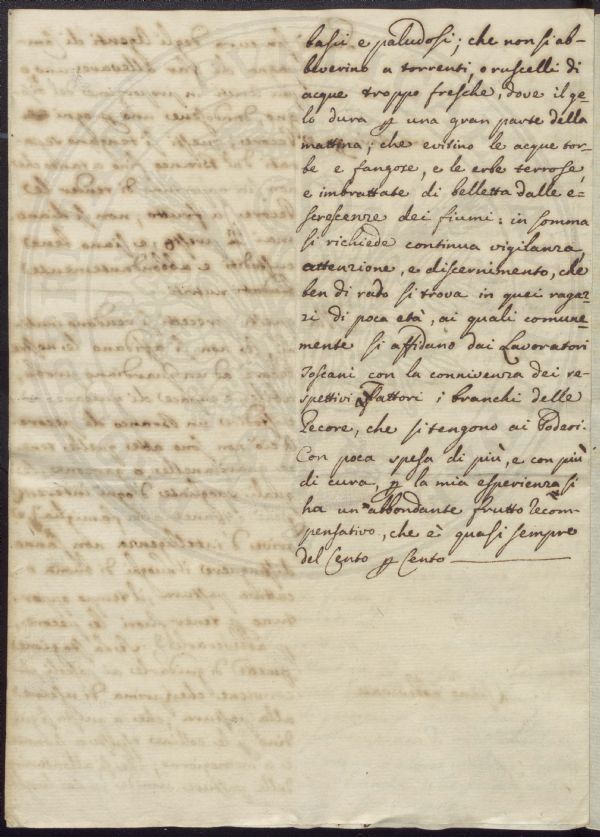 bassi e paludosi; che non si ab-
beverino a torrenti, o ruscelli di
acque troppo fresche, dove il ge-
lo dura p una gran parte della
mattina; che evitino le acque tor-
be e fangose, e le erbe terrose,
e imbrattate di belletta dalle e-
screscenze dei fiumi: in somma
si richiede continua vigilanza,
attenzione, e discernimento, che
ben di rado si trova in quei ragaz-
zi di poca età, ai quali comune-
mente si affidano dai Lavoratori
Toscani con la connivenza dei re-
spettivi Fattori i branchi delle
Pecore, che si tengono ai Poderi.
Con poca spesa di più, e con più
di cura, p la mia esperienza si
ha un abbondante frutto recom-
pensativo, che è quasi sempre
del Cento p Cento